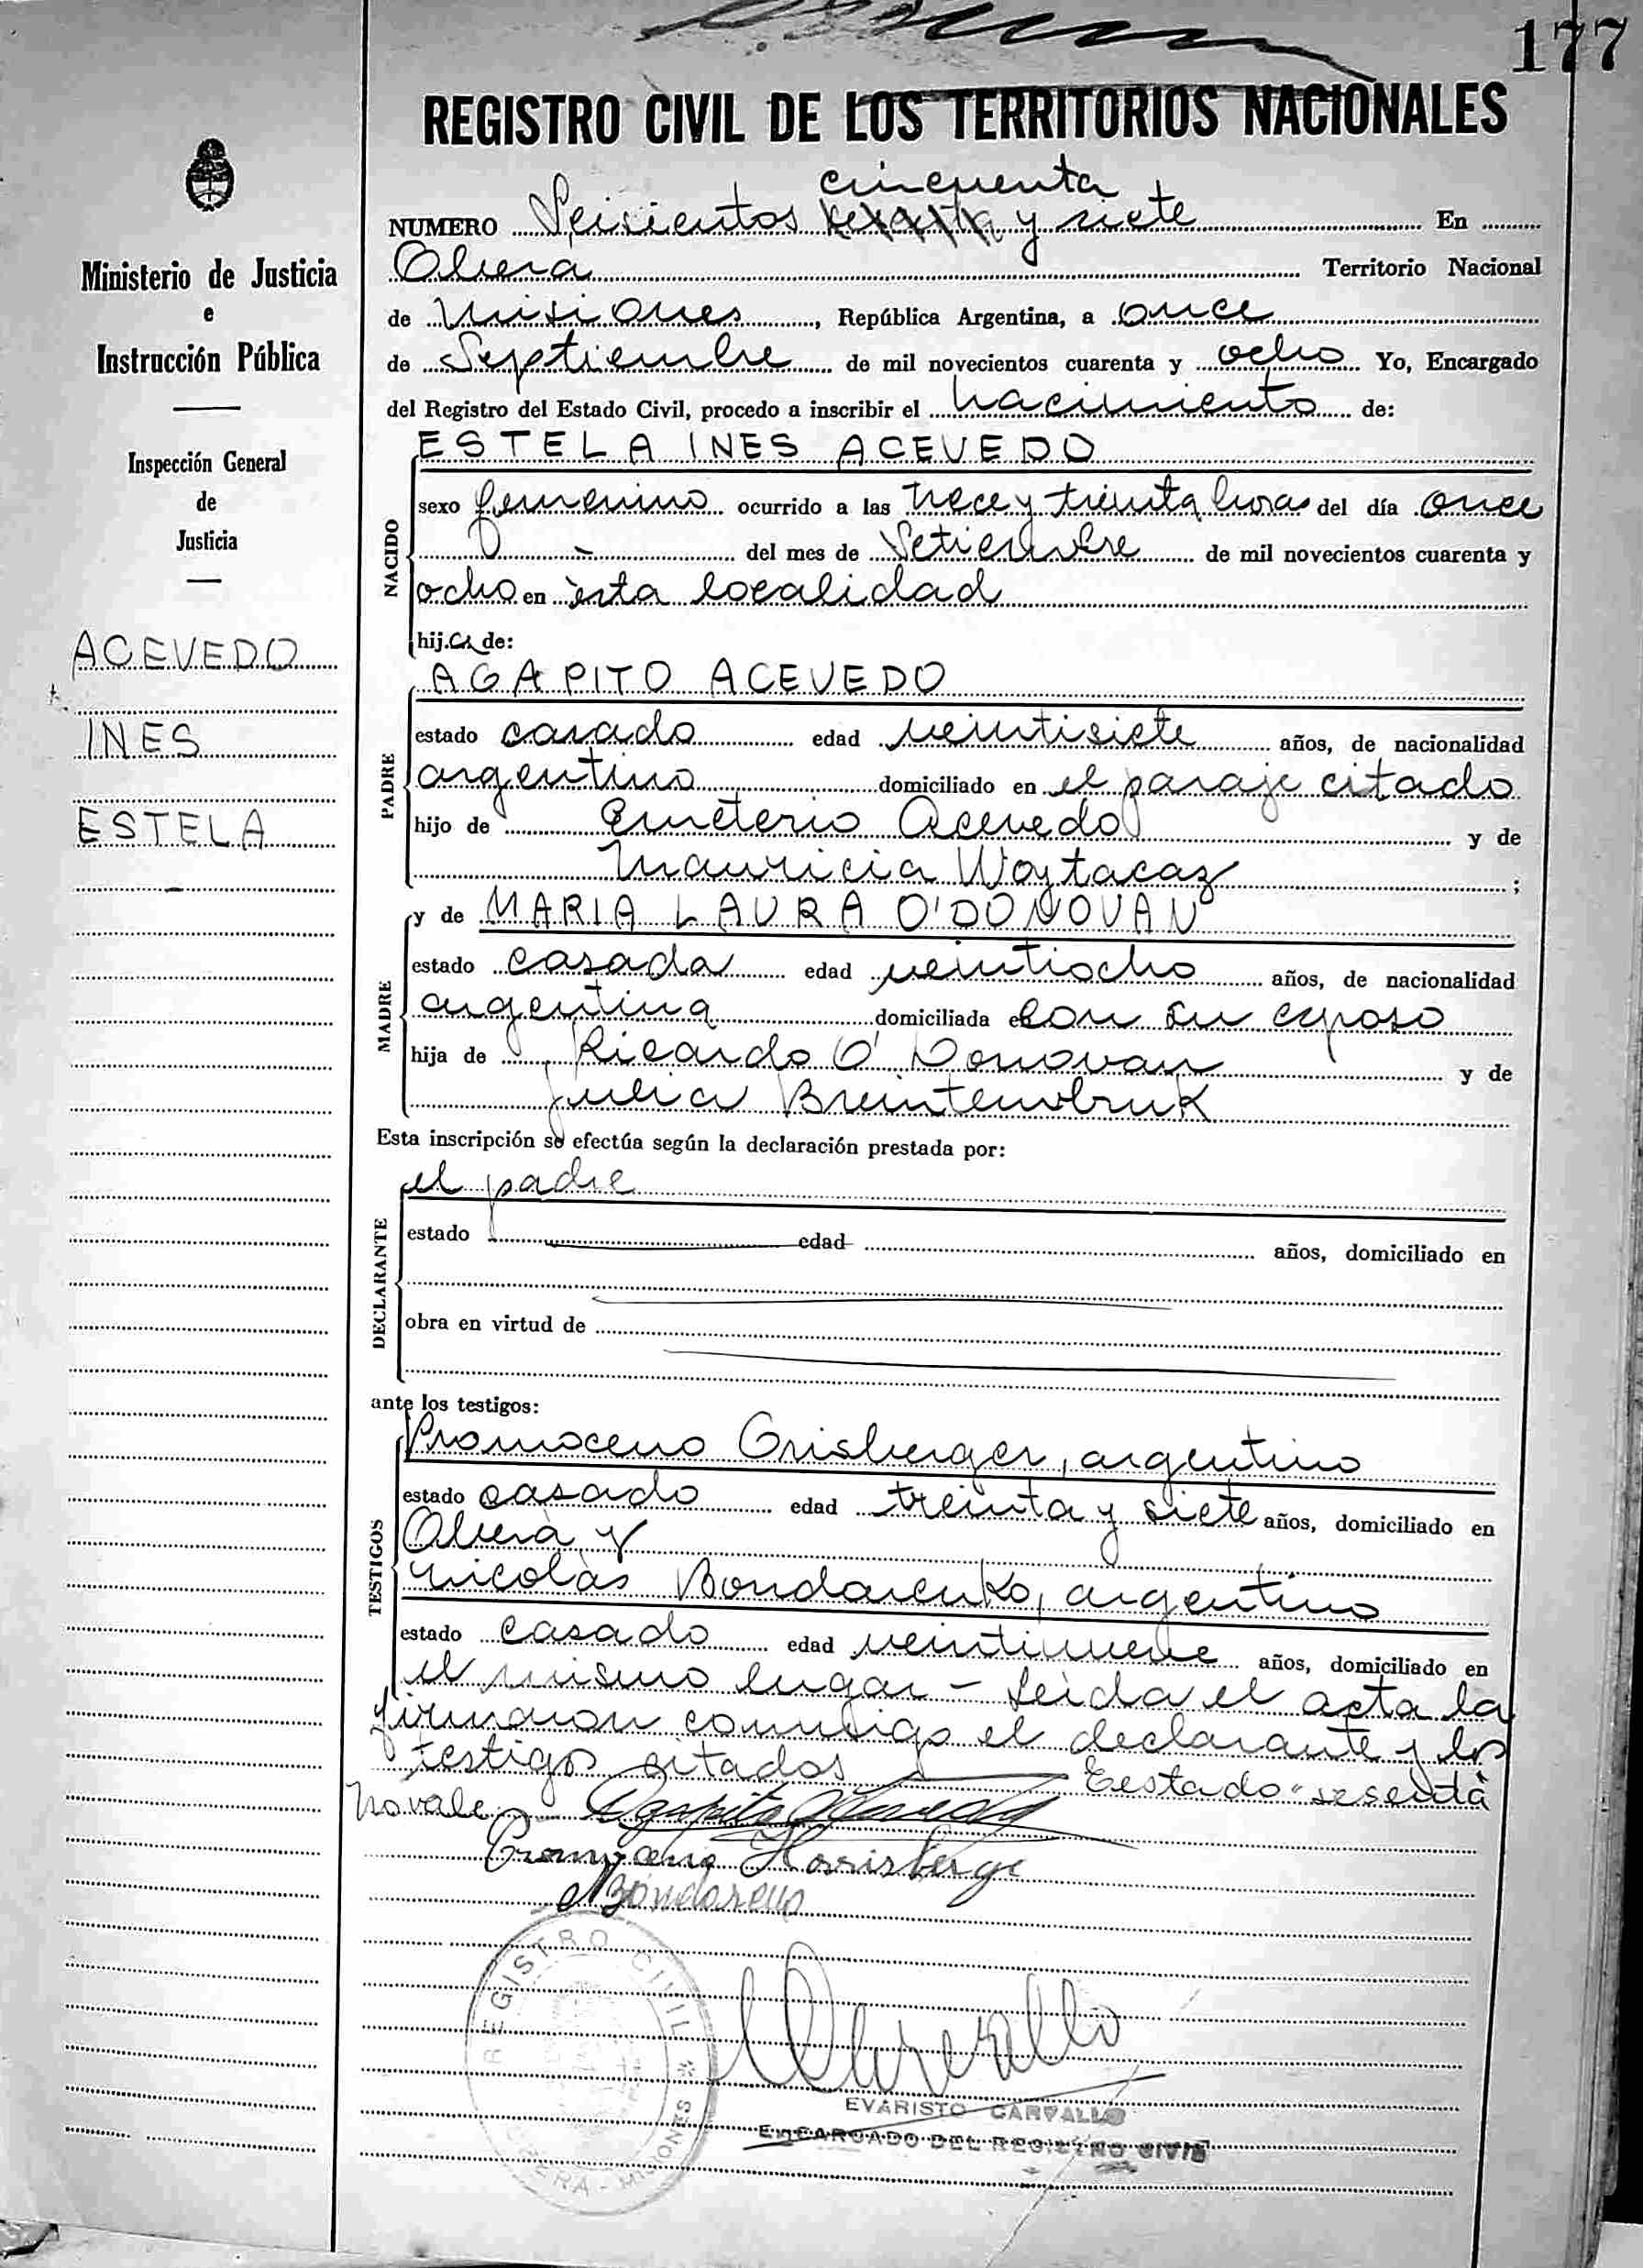 177
REGISTRO CIVIL DE LOS TERRITORIOS NACIONALES
Ministerio de Justicia
e
Instrucción Pública
Inspección General
de
Justicia
ACEVEDO
INES
ESTELA
cincuenta
NUMERO Seicientos sesenta y siete En
Oberá Territorio Nacional
de Misiones, República Argentina, a once
de Septiembre de mil novecientos cuarenta y ocho Yo, Encargado
del Registro del Estado Civil, procedo a inscribir el nacimiento de:
ESTELA INES ACEVEDO
NACIDO
sexo femenino ocurrido a las trece y treinta horas del día once
del mes de Setiembre de mil novecientos cuarenta y
ocho en èsta localidad
hija de:
AGAPITO ACEVEDO
PADRE
estado casado edad veintisiete años, de nacionalidad
argentino domiciliado en el paraje citado
hijo de Emeterio Acevedo y de
Mauricia Woytacaz ;
y de MARIA LAURA O'DONOVAN
MADRE
estado casada edad veintiocho años, de nacionalidad
argentina domiciliada con su esposo
hija de Ricardo O'Donovan y de
Julia Breintembruk
Esta inscripción se efectúa según la declaración prestada por:
el padre
DECLARANTE
estado edad años, domiciliado en
obra en virtud de
ante los testigos:
TESTIGOS
Promoceno Grisberger, argentino
estado casado edad treinta y siete años, domiciliado en
Oberà y
Nicolàs Bondarenko, argentino
estado casado edad veintinueve años, domiciliado en
el mismo lugar - Leida el acta la
firmaron conmigo el declarante y los
testigos citados Testado "sesenta
no vale
Agapito Acevedo
Horrisberge
REGISTRO CIVIL * OBERA - MISIONES
EVARISTO CARVALLO
ENCARGADO DEL REGISTRO CIVIL